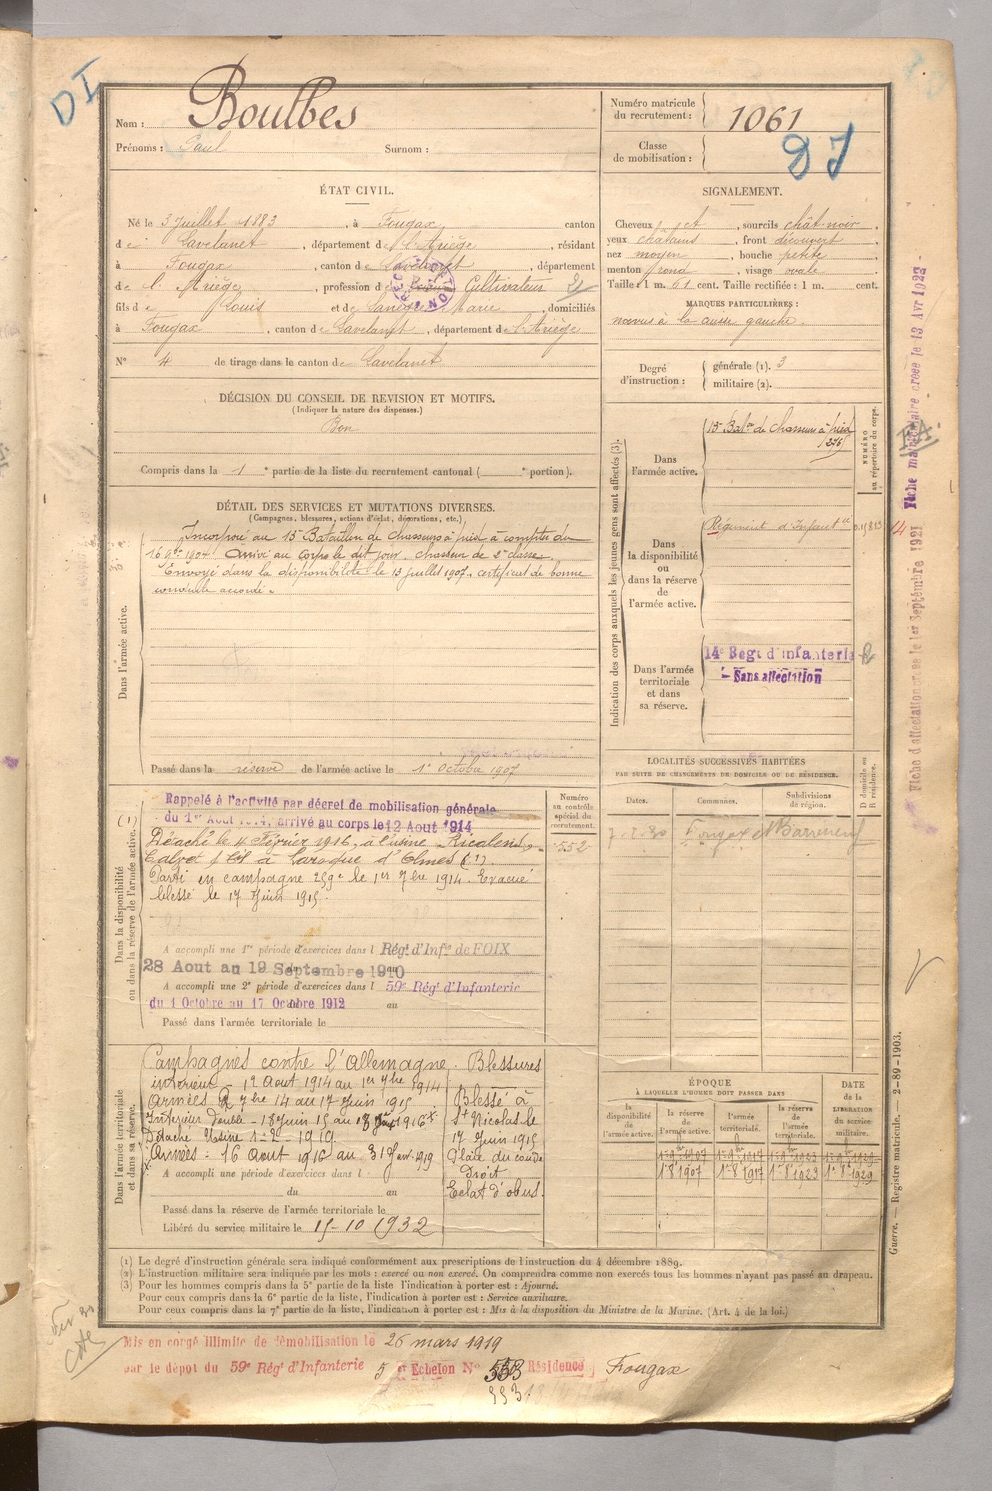 DI
Nom : Boulbes
Prénoms : Paul Surnom :
Numéro matricule du recrutement : 1061
Classe de mobilisation :
ÉTAT CIVIL.
Né le 3 Juillet 1883, à Fougax, canton
de Lavelanet, département de l'Ariège, résidant
à Fougax, canton de Lavelanet, département
de l'Ariège, profession de Cultivateur
fils de Louis et de Marie, domiciliés
à Fougax, canton de Lavelanet, département de l'Ariège
N° 4 de tirage dans le canton de Lavelanet
SIGNALEMENT.
Cheveux, sourcils chât-noir,
yeux châtains, front découvert
nez moyen, bouche petite
menton rond, visage ovale
Taille : 1 m. 61 cent. Taille rectifiée : 1 m. cent.
MARQUES PARTICULIÈRES :
nœvus à la cuisse gauche.
Degré d'instruction : générale (1). 3
militaire (2).
DÉCISION DU CONSEIL DE REVISION ET MOTIFS.
(Indiquer la nature des dispenses.)
Bon
Compris dans la 1e partie de la liste du recrutement cantonal ( e portion).
DÉTAIL DES SERVICES ET MUTATIONS DIVERSES.
(Campagnes, blessures, actions d'éclat, décorations, etc.)
Dans l'armée active.
Incorporé au 15 Bataillon de Chasseurs à pied à compter du
16 9bre 1904. Arrivé au corps le dit jour. chasseur de 2e classe.
Envoyé dans la disponibilité le 13 juillet 1907. certificat de bonne
conduite accordé.
Passé dans la réserve de l'armée active le 1er Octobre 1907
Indication des corps auxquels les jeunes gens sont affectés (3).
NUMÉRO au répertoire du corps.
Dans l'armée active.
15e Baton de Chasseurs à pied
Dans la disponibilité ou dans la réserve de l'armée active.
Régiment d'Infanterie
Dans l'armée territoriale et dans sa réserve.
14e Regt d'infanterie
Sans affectation
Fiche d'affectation créée le 1er Septembre 1921 Fiche matriculaire créée le 13 Avr 1922
LOCALITÉS SUCCESSIVES HABITÉES
PAR SUITE DE CHANGEMENTS DE DOMICILE OU DE RÉSIDENCE.
Dates. Communes. Subdivisions de région. D domicile ou R résidence.
Fougax et Barrineuf
Dans la disponibilité ou dans la réserve de l'armée active.
Numéro au contrôle spécial du recrutement.
552
Rappelé à l'activité par décret de mobilisation générale
du 1er Aout 1914, arrivé au corps le 12 Aout 1914
Détaché le 4 Février 1916, à l'usine Ricalens,
Calvet & fils à Laroque d'Olmes (1).
Parti en campagne 259e le 1er 7bre 1914. Evacué
blessé le 17 Juin 1915.
A accompli une 1re période d'exercices dans l Régt d'Infie de FOIX
28 Aout au 19 Septembre 1910
A accompli une 2e période d'exercices dans l 59e Régt d'Infanterie
du 1 Octobre au 17 Octobre 1912 au
Passé dans l'armée territoriale le
Dans l'armée territoriale et dans sa réserve.
Campagnes contre l'Allemagne. Blessures
intérieur - 12 Aout 1914 au 1er 7bre 1914
Armées 2 7bre 14 au 17 Juin 1915
Intérieur Double - 18 Juin 15 au 1916
Détaché Usine
Armées : 16 Aout 1916 au 31 Janv. 1919
Blessé à
St Nicolas le
17 Juin 1915
Plaie du coude
Droit
Eclat d'obus.
A accompli une période d'exercices dans l
du au
Passé dans la réserve de l'armée territoriale le
Libéré du service militaire le 15-10 1932
ÉPOQUE
À LAQUELLE L'HOMME DOIT PASSER DANS
la disponibilité de l'armée active.
la réserve de l'armée active.
l'armée territoriale.
la réserve de l'armée territoriale.
DATE de la LIBÉRATION du service militaire.
1 8 1907 1 8 1917 1 8 1923 1 8 1929
Guerre. — Registre matricule. — 2-89-1903.
(1) Le degré d'instruction générale sera indiqué conformément aux prescriptions de l'instruction du 4 décembre 1889.
(2) L'instruction militaire sera indiquée par les mots : exercé ou non exercé. On comprendra comme non exercés tous les hommes n'ayant pas passé au drapeau.
(3) Pour les hommes compris dans la 5e partie de la liste l'indication à porter est : Ajourné.
Pour ceux compris dans la 6e partie de la liste, l'indication à porter est : Service auxiliaire.
Pour ceux compris dans la 7e partie de la liste, l'indication à porter est : Mis à la disposition du Ministre de la Marine. (Art. 4 de la loi.)
Mis en congé illimité de démobilisation le 26 mars 1919
par le dépot du 59e Rég' d'Infanterie 5 e Echelon N° 553 Résidence Fougax
553